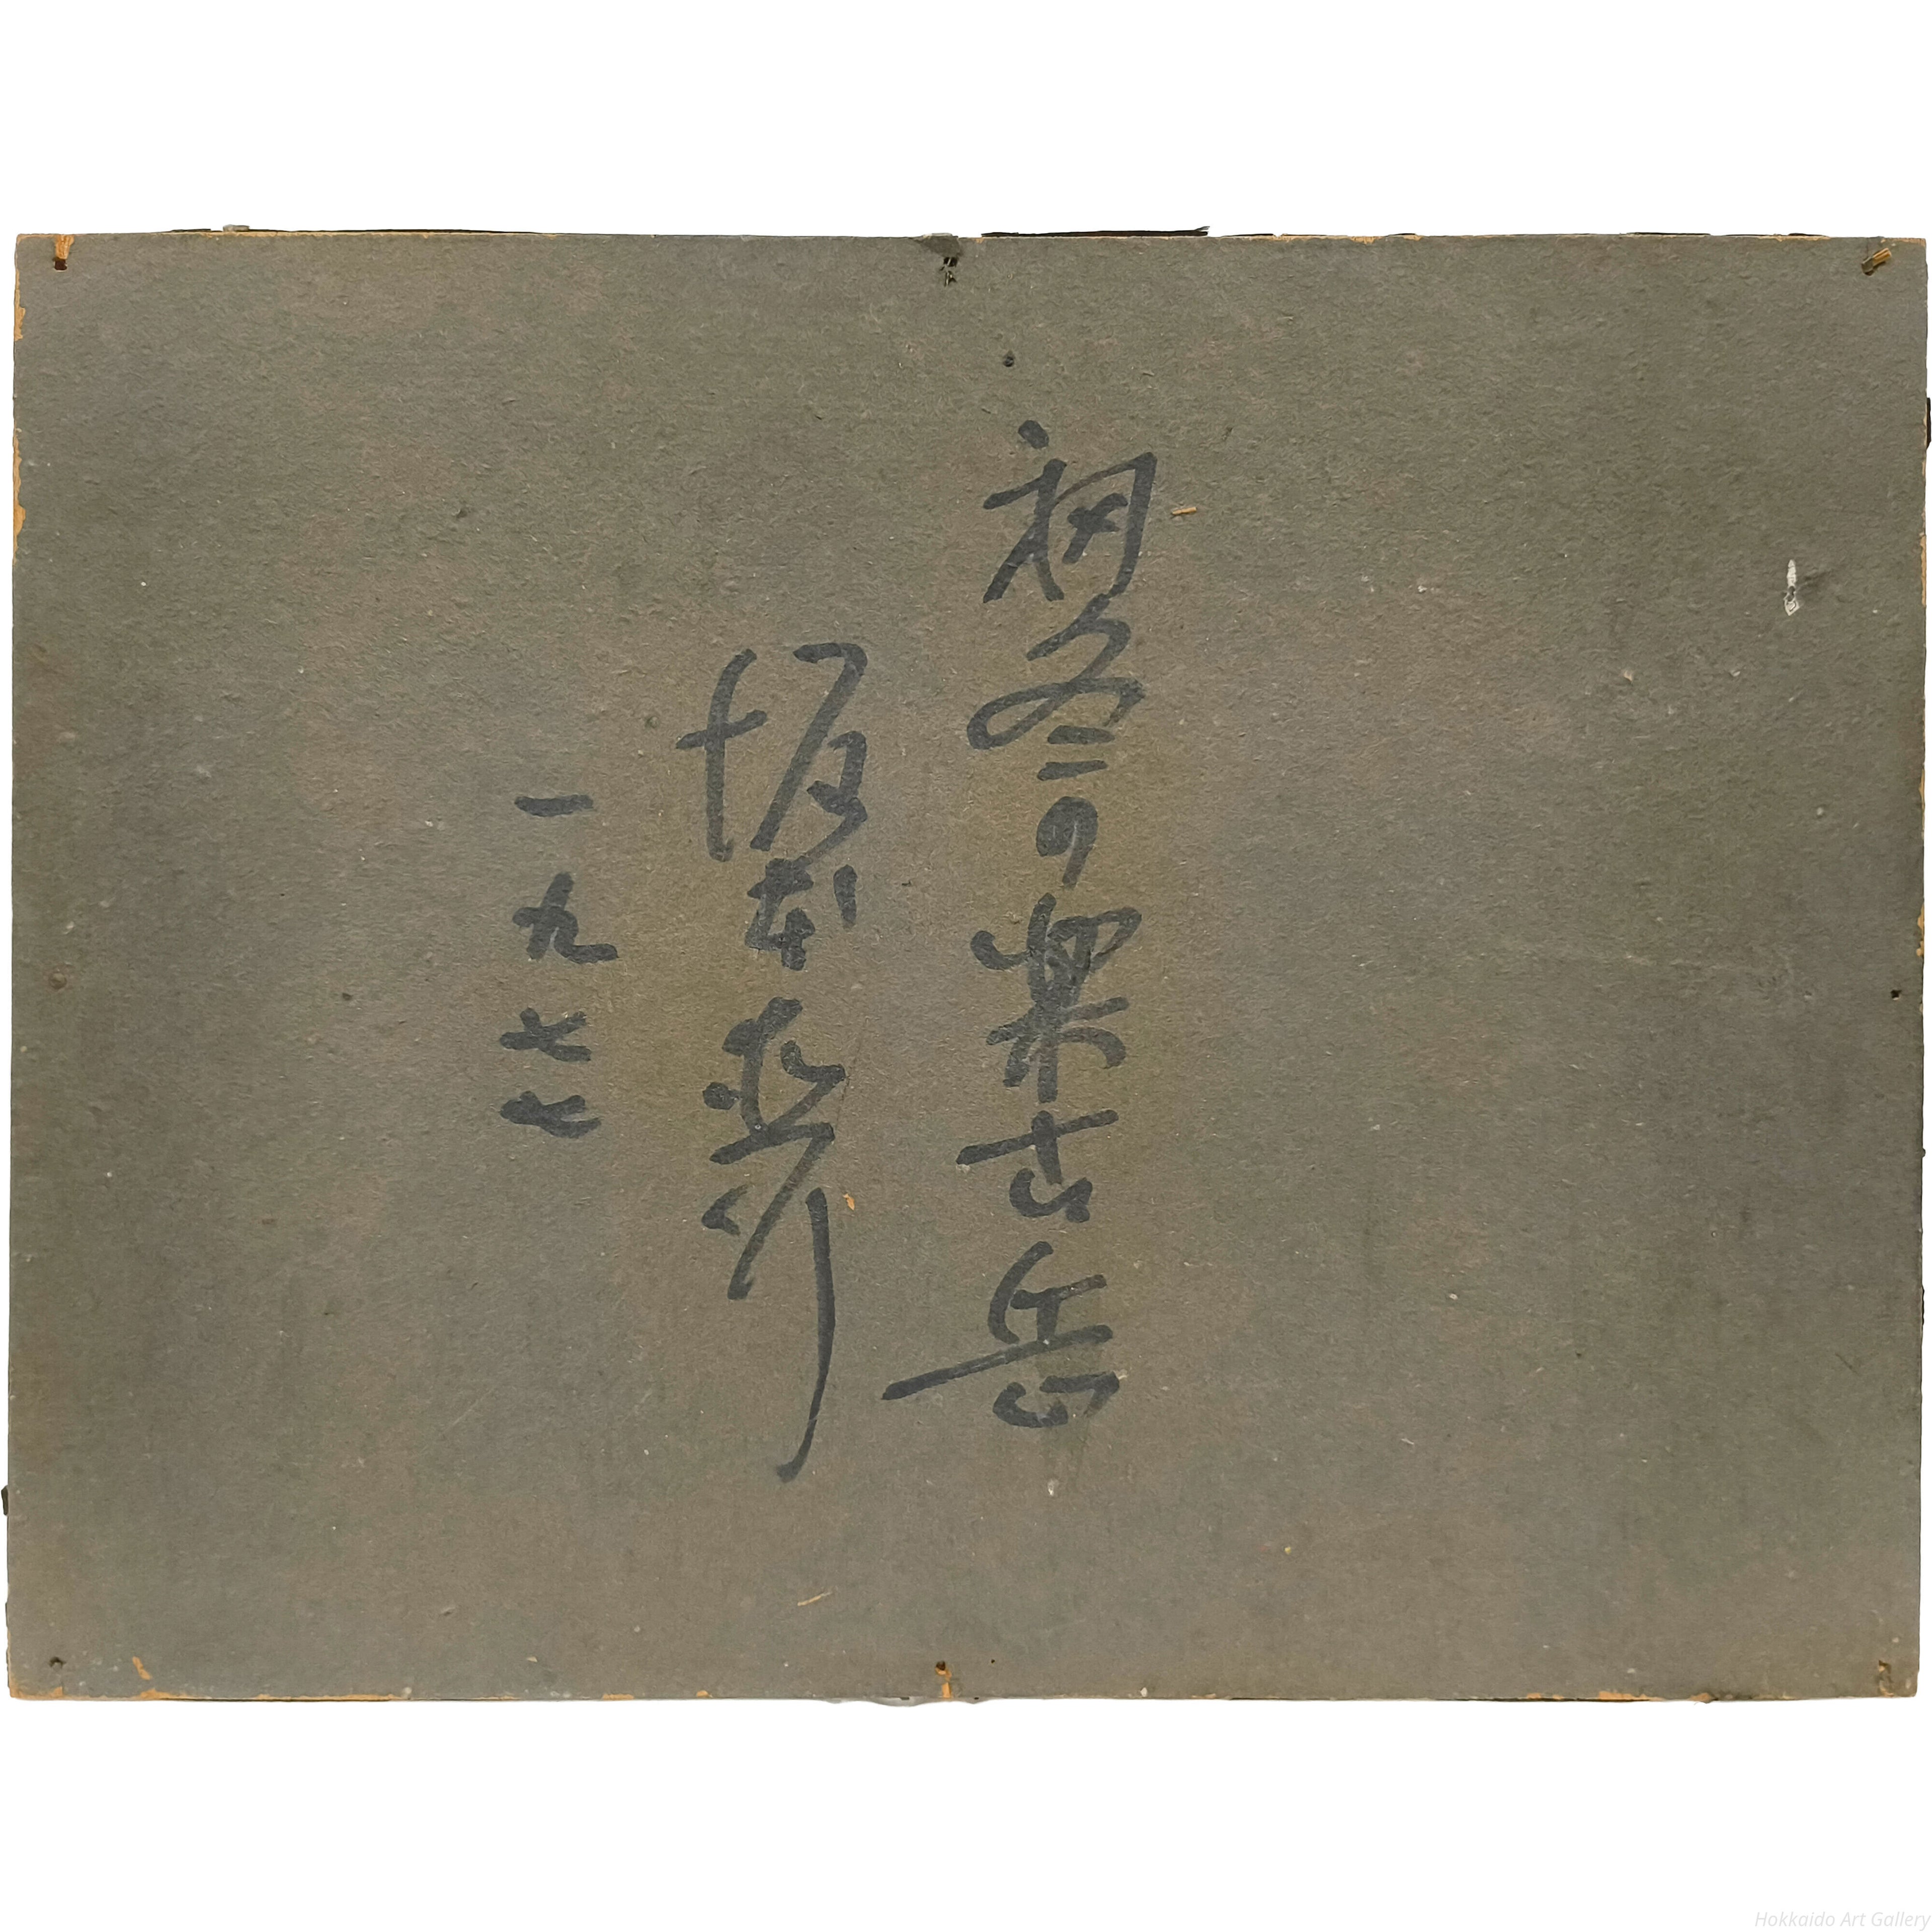 初冬の楽古岳
坂本直行
一九七七
Hokkaido Art Gallery